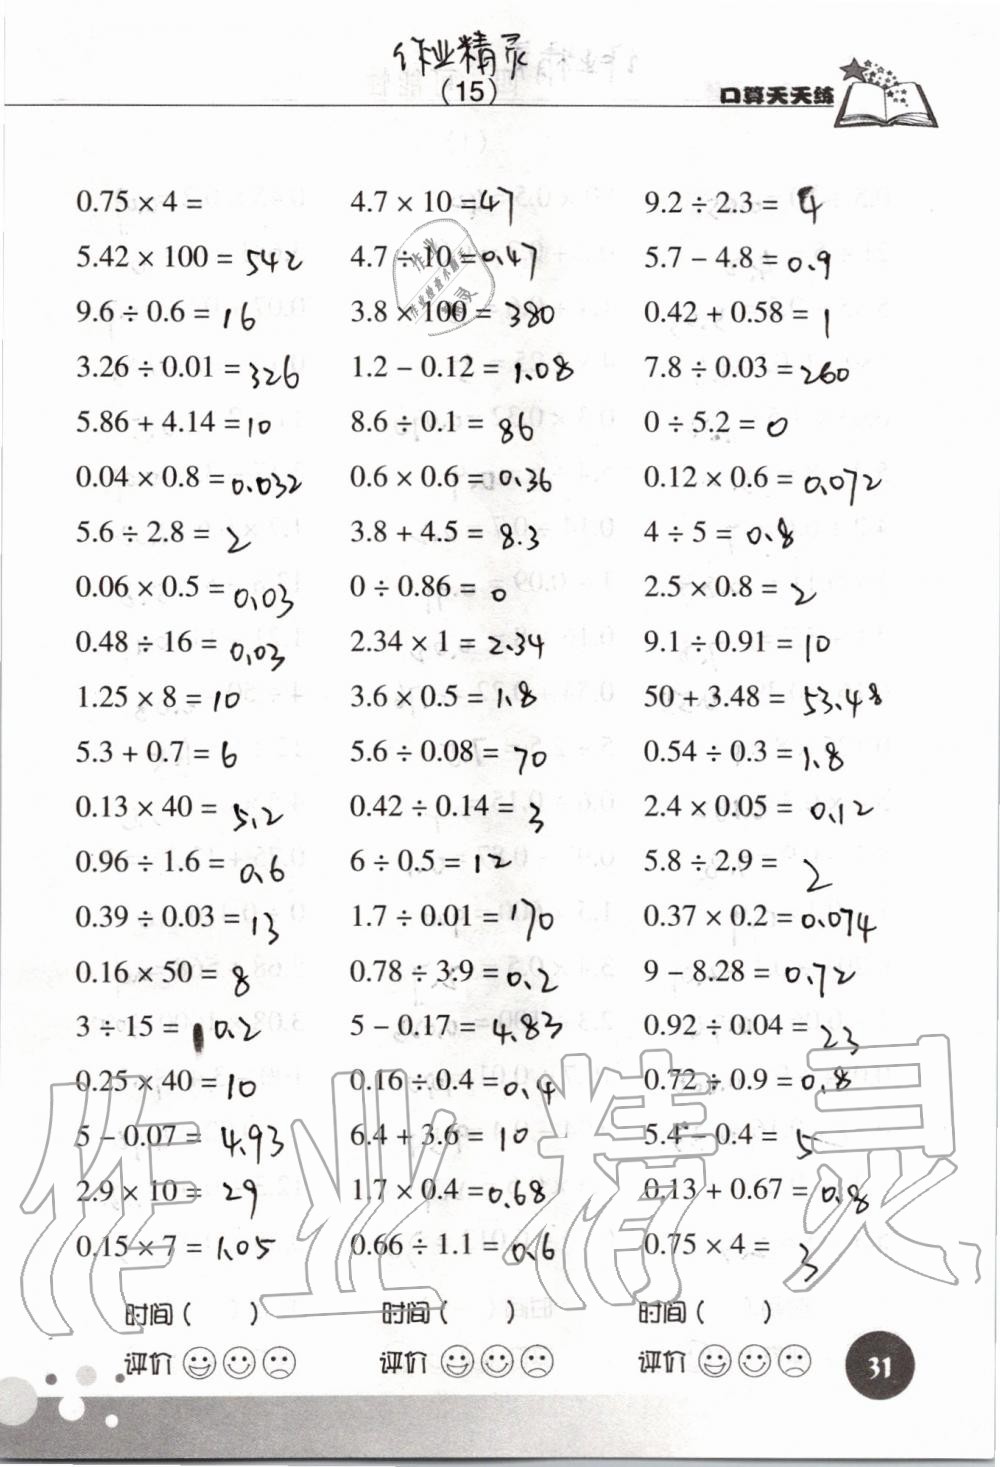 作业精灵
(15)
口算天天练
0.75 × 4 =
4.7 × 10 = 47
9.2 ÷ 2.3 = 4
5.42 × 100 = 542
4.7 ÷ 10 = 0.47
5.7 − 4.8 = 0.9
9.6 ÷ 0.6 = 16
3.8 × 100 = 380
0.42 + 0.58 = 1
3.26 ÷ 0.01 = 326
1.2 − 0.12 = 1.08
7.8 ÷ 0.03 = 260
5.86 + 4.14 = 10
8.6 ÷ 0.1 = 86
0 ÷ 5.2 = 0
0.04 × 0.8 = 0.032
0.6 × 0.6 = 0.36
0.12 × 0.6 = 0.072
5.6 ÷ 2.8 = 2
3.8 + 4.5 = 8.3
4 ÷ 5 = 0.8
0.06 × 0.5 = 0.03
0 ÷ 0.86 = 0
2.5 × 0.8 = 2
0.48 ÷ 16 = 0.03
2.34 × 1 = 2.34
9.1 ÷ 0.91 = 10
1.25 × 8 = 10
3.6 × 0.5 = 1.8
50 + 3.48 = 53.48
5.3 + 0.7 = 6
5.6 ÷ 0.08 = 70
0.54 ÷ 0.3 = 1.8
0.13 × 40 = 5.2
0.42 ÷ 0.14 = 3
2.4 × 0.05 = 0.12
0.96 ÷ 1.6 = 0.6
6 ÷ 0.5 = 12
5.8 ÷ 2.9 = 2
0.39 ÷ 0.03 = 13
1.7 ÷ 0.01 = 170
0.37 × 0.2 = 0.074
0.16 × 50 = 8
0.78 ÷ 3.9 = 0.2
9 − 8.28 = 0.72
3 ÷ 15 = 0.2
5 − 0.17 = 4.83
0.92 ÷ 0.04 = 23
0.25 × 40 = 10
0.16 ÷ 0.4 = 0.4
0.72 ÷ 0.9 = 0.8
5 − 0.07 = 4.93
6.4 + 3.6 = 10
5.4 − 0.4 = 5
2.9 × 10 = 29
1.7 × 0.4 = 0.68
0.13 + 0.67 = 0.8
0.15 × 7 = 1.05
0.66 ÷ 1.1 = 0.6
0.75 × 4 = 3
作业精灵
时间 ( )
时间 ( )
时间 ( )
评价
评价
评价
31